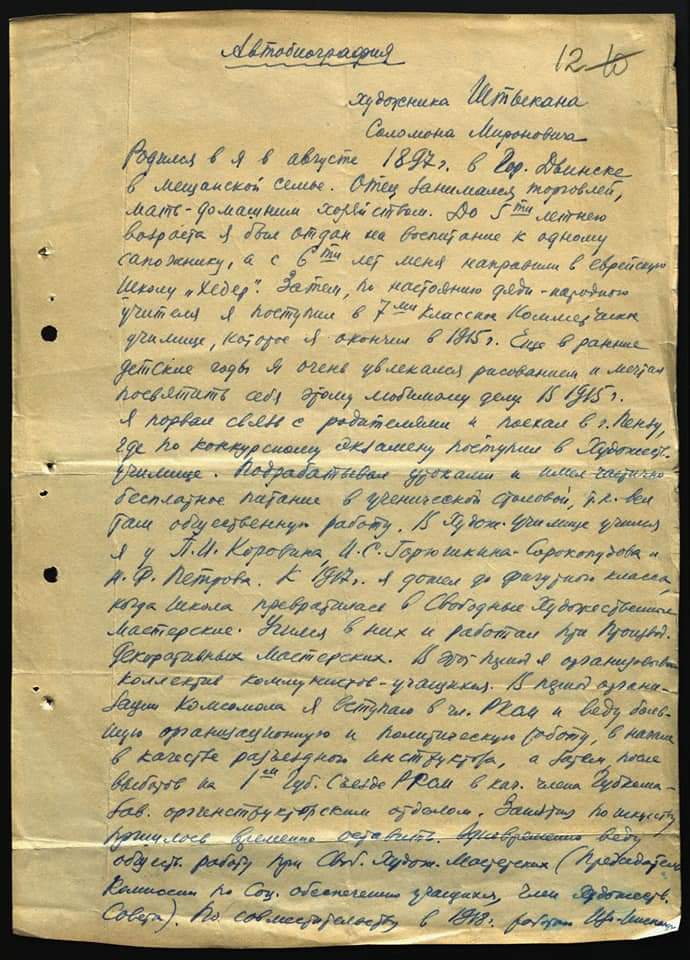 Автобиография
12
художника Штыкана
Соломона Мироновича
Родился я в августе 1897 г. в гор. Двинске
в мещанской семье. Отец занимался торговлей,
мать - домашним хозяйством. До 5 ти летнего
возраста я был отдан на воспитание к одному
сапожнику, а с 6 ти лет меня направили в еврейскую
школу „Хедер“. Затем, по настоянию дяди - народного
учителя я поступил в 7 ми классное Коммерческое
училище, которое я окончил в 1915 г. Еще в ранние
детские годы я очень увлекался рисованием и мечтал
посвятить себя этому любимому делу. В 1915 г.
я порвал связь с родителями и поехал в г. Пензу,
где по конкурсному экзамену поступил в Художеств.
училище. Подрабатывал уроками и имел частично
бесплатное питание в ученической столовой, т.к. вел
там общественную работу. В Худож. училище учился
я у П.И. Коровина, И.С. Горюшкина-Сорокопудова и
Н.Ф. Петрова. К 1917 г. я дошел до фигурного класса,
когда школа превратилась в Свободные Художественные
Мастерские. Учился в них и работал при Производ.
Декоративных Мастерских. В этот период я организовываю
коллектив коммунистов-учащихся. В период органи-
зации комсомола я вступаю в чл. РКСМ и веду боль-
шую организационную и политическую работу, в начале
в качестве разъездного инструктора, а затем, после
выборов на 1 ом Губ. Съезде РКСМ в кач. члена Губкома -
зав. оргинструкторским отделом. Занятия по искусству
пришлось временно оставить. Одновременно веду
обществ. работу при Своб. Худож. Мастерских (Председатель
Комиссии по Соц. обеспечению учащихся, член Художеств.
Совета). По совместительству в 1918 г. работаю